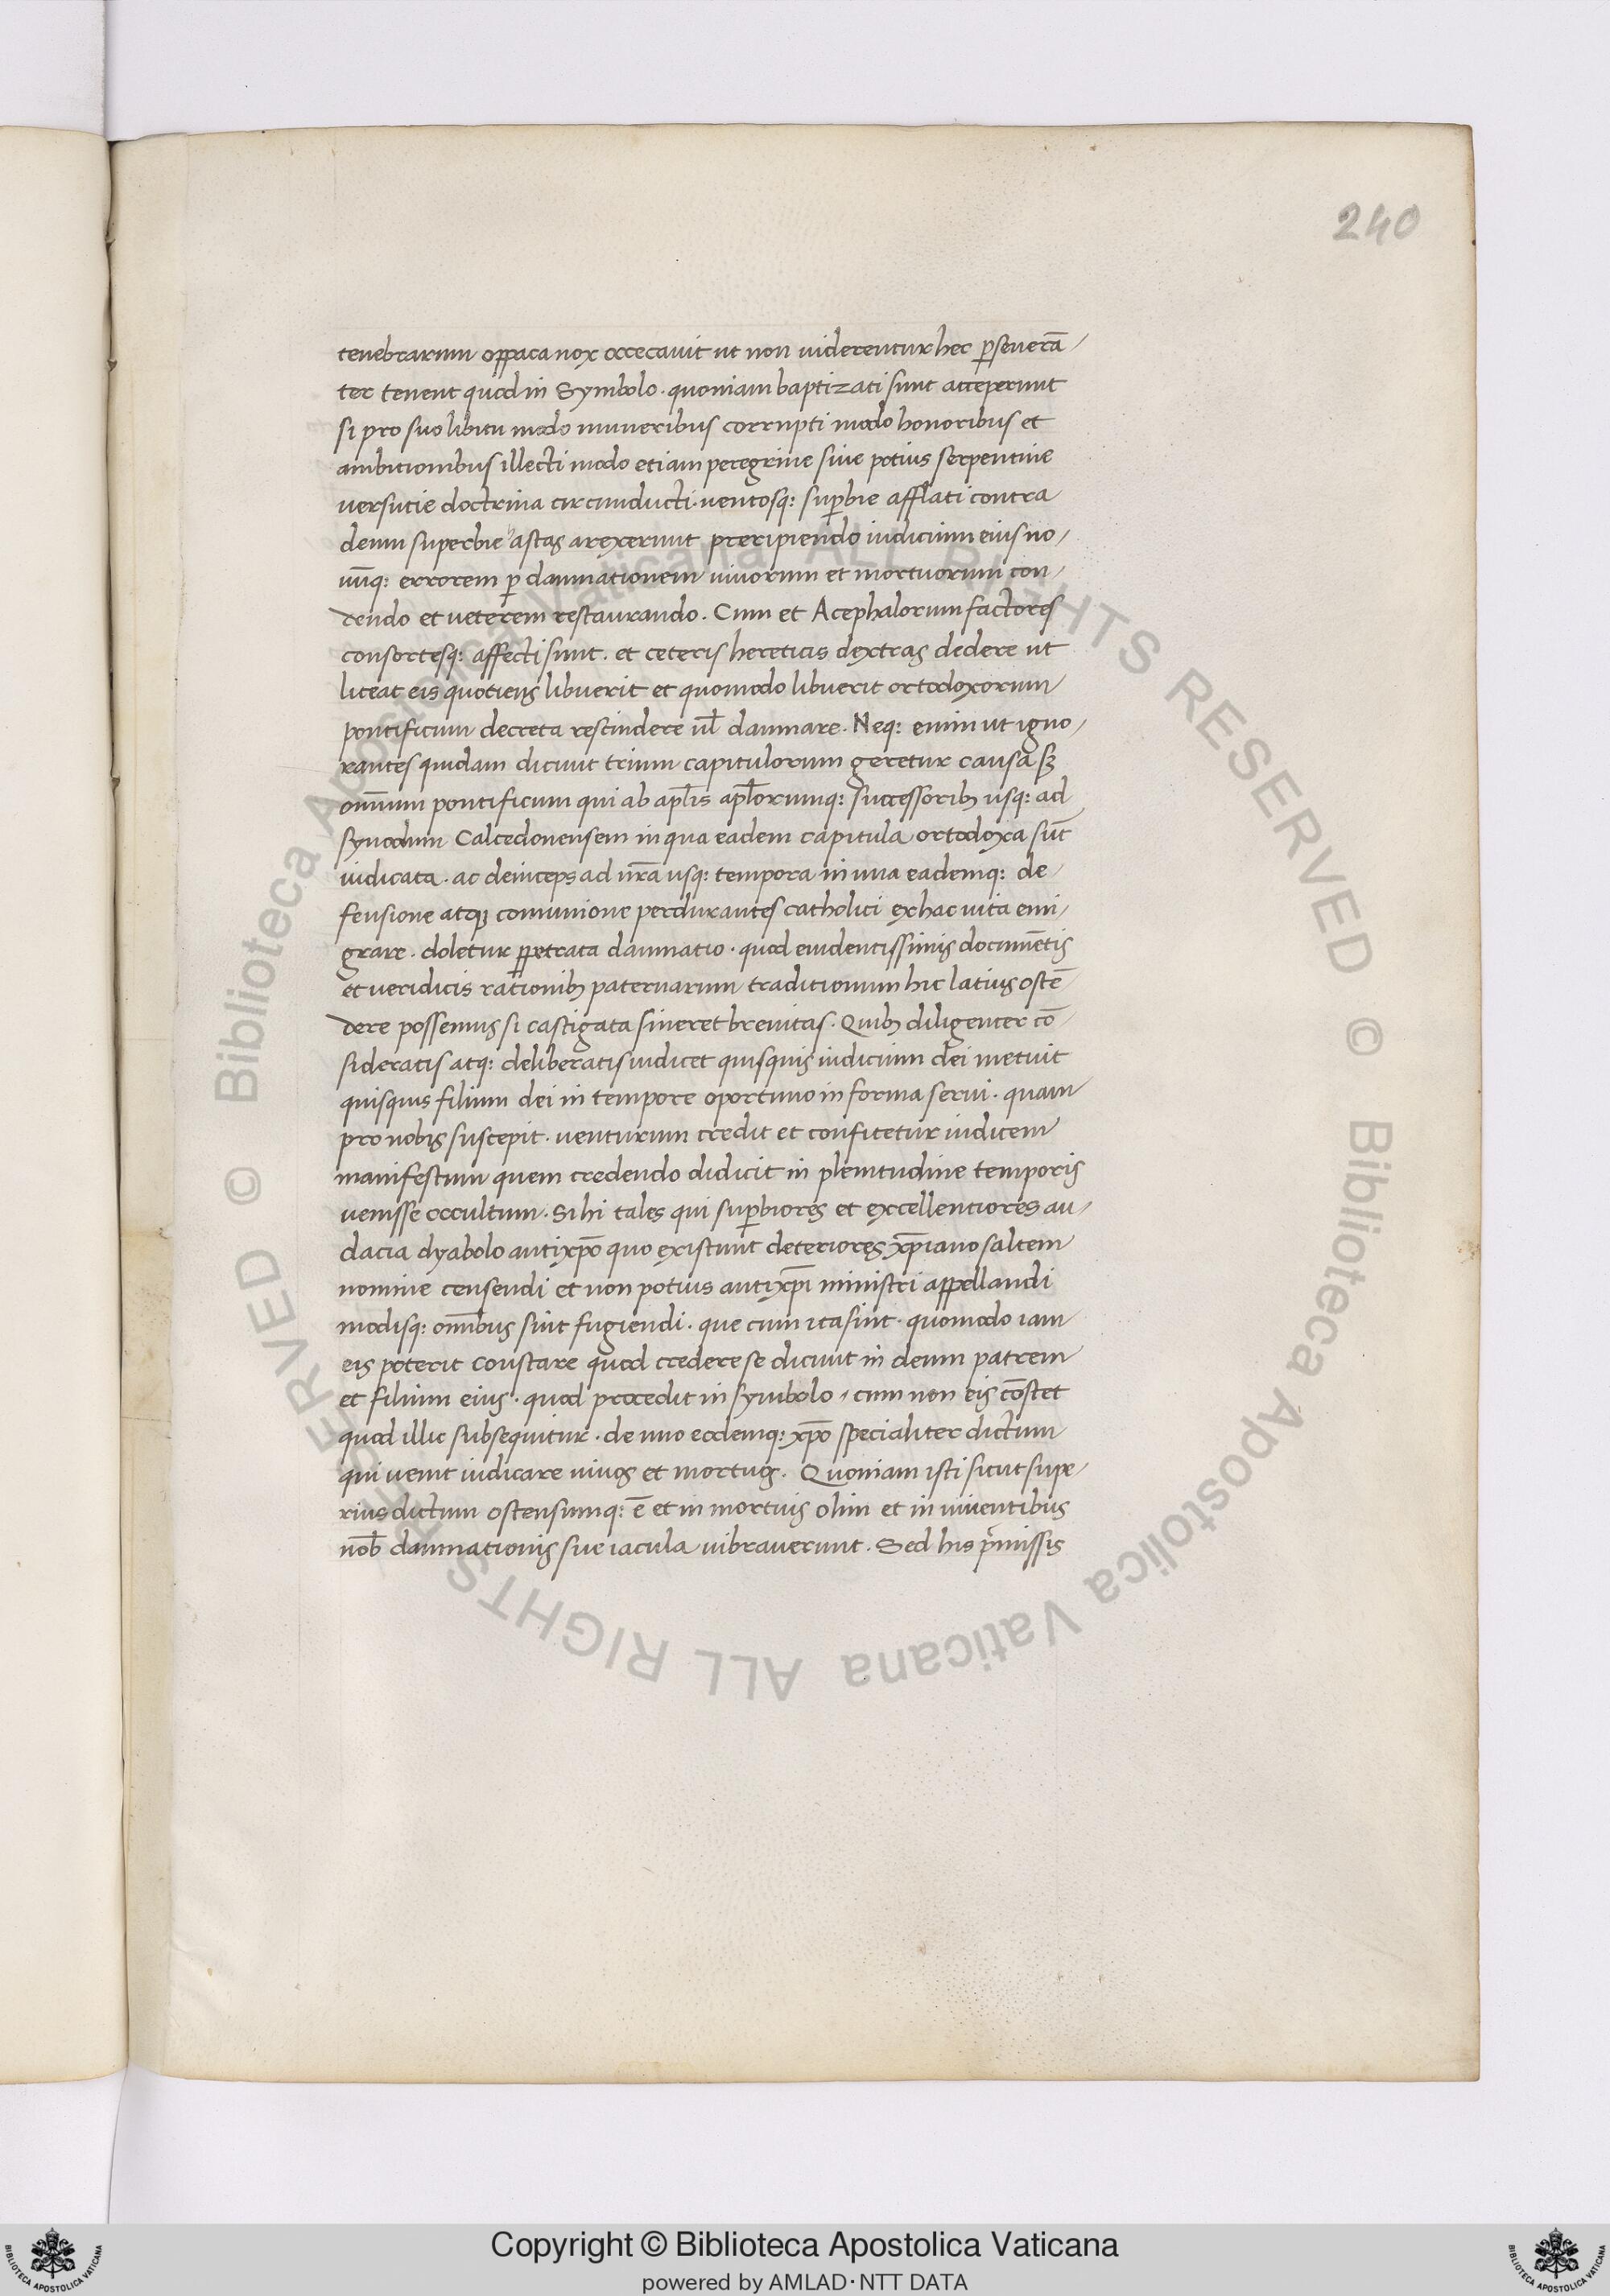 240
tenebrarum oppaca nox occecauit ut non uiderentur hec p̱seuerā-
ter tenent quod in Symbolo · quoniam baptizati sunt acceperunt
si pro suo libitu modo muneribus corrupti modo honoribus et
ambitionibus illecti modo etiam peregrine siue potius serpentine
uersutie doctrina circumducti · uentosq: sup̱bie afflati contra
deum superbie hastas arexerunt preripiendo iudicium eius no-
uūq: errorem p̱ damnationem uiuorum et mortuorum con-
dendo et ueterem restaurando. Cum et Acephalorum factores
consortesq: affecti sunt. et ceteris hereticis dextras dedere ut
liceat eis quotiens libuerit et quomodo libuerit ortodoxorum
pontificum decreta rescindere ul̄ damnare. Neq: enim ut igno-
rantes quidam dicunt trium capitulorum geretur causa sꝫ
omīum pontificum qui ab apl̄is apl̄orumq: successoribꝫ usq: ad
synodum Calcedonensem in qua eadem capitula ortodoxa sūt
iudicata · ac deinceps ad nr̄a usq: tempora in una eademq: de-
fensione atqꝫ comunione perdurantes catholici ex hac uita emi-
grare · doletur pp̱etrata damnatio · quod euidentissimis documētis
et ueridicis rationibꝫ paternarum traditionum hic latius ostē-
dere possemus si castigata sineret breuitas. Quibꝫ diligenter cō-
sideratis atq: deliberatis iudicet quisquis iudicium dei metuit
quisquis filium dei in tempore oportuno in forma serui · quam
pro nobis suscepit · uenturum credit et confitetur iudicem
manifestum quem credendo didicit in plenitudine temporis
uenisse occultum. Si hi tales qui sup̱biores et excellentiores au-
dacia dyabolo antixp̄o quo existunt deteriores xp̄iano saltem
nomine censendi et non potius antixp̄i ministri appellandi
modisq: omībus sint fugiendi · que cum ita sint · quomodo iam
eis poterit constare quod credere se dicunt in deum patrem
et filium eius · quod procedit in symbolo · cum non eis cōstet
quod illic subsequitur · de uno eodemq: xp̄o specialiter dictum
qui uenit iudicare uiuos et mortuos. Quoniam isti sicut supe-
rius dictum ostensumq: ē et in mortuis olim et in uiuentibus
nob̄ damnationis sue iacula uibrauerunt. Sed his p̄missis
© Biblioteca Apostolica Vaticana ALL RIGHTS RESERVED
© Biblioteca Apostolica Vaticana ALL RIGHTS RESERVED
Copyright © Biblioteca Apostolica Vaticana
powered by AMLAD·NTT DATA
BIBLIOTECA APOSTOLICA VATICANA
BIBLIOTECA APOSTOLICA VATICANA